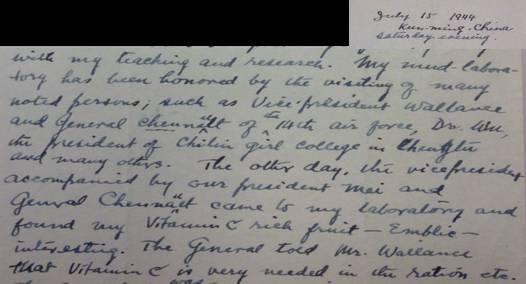 July 15 1944
Kun-ming. China
Saturday evening.
with my teaching and research. "My mind labora-
tory has been honored by the visiting of many
noted persons; such as Vice-president Wallance
and General Chennult of the 14th air force, Dr. Wu,
the president of Chilin girl college in Chengtu
and many others. The other day, the vicepresident
accompanied by our president Mei and
General Chennault came to my laboratory and
found my Vitamin C rich fruit — Emblic —
interesting. The General told Mr. Wallance
that Vitamin C is very needed in the ration etc.